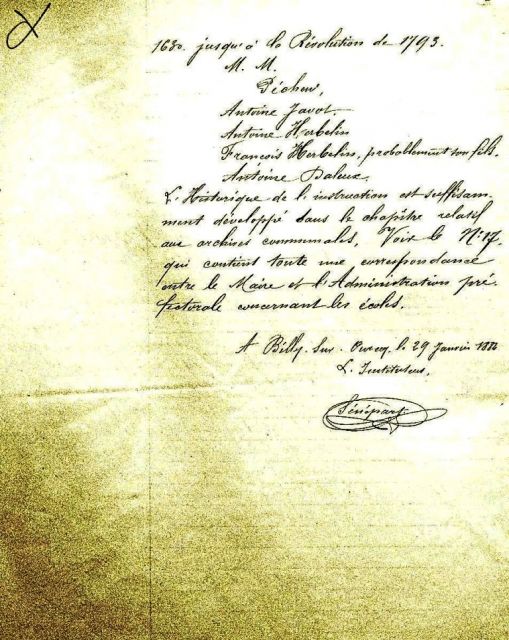 1680. jusqu'à la Révolution de 1793.
M. M.
Pécheur,
Antoine Javot.
Antoine Herbelin
François Herbelin, probablement son fils.
Antoine Daleux.
L'Historique de l'instruction est suffisam-
ment développé dans le chapître relatif
aux archives communales. Voir le N° 17.
qui contient toute une correspondance
entre le Maire et l'Administration pré-
fectorale concernant les écoles.
A Billy-sur-Ourcq, le 29 Janvier
L'Instituteur,
Sénépart